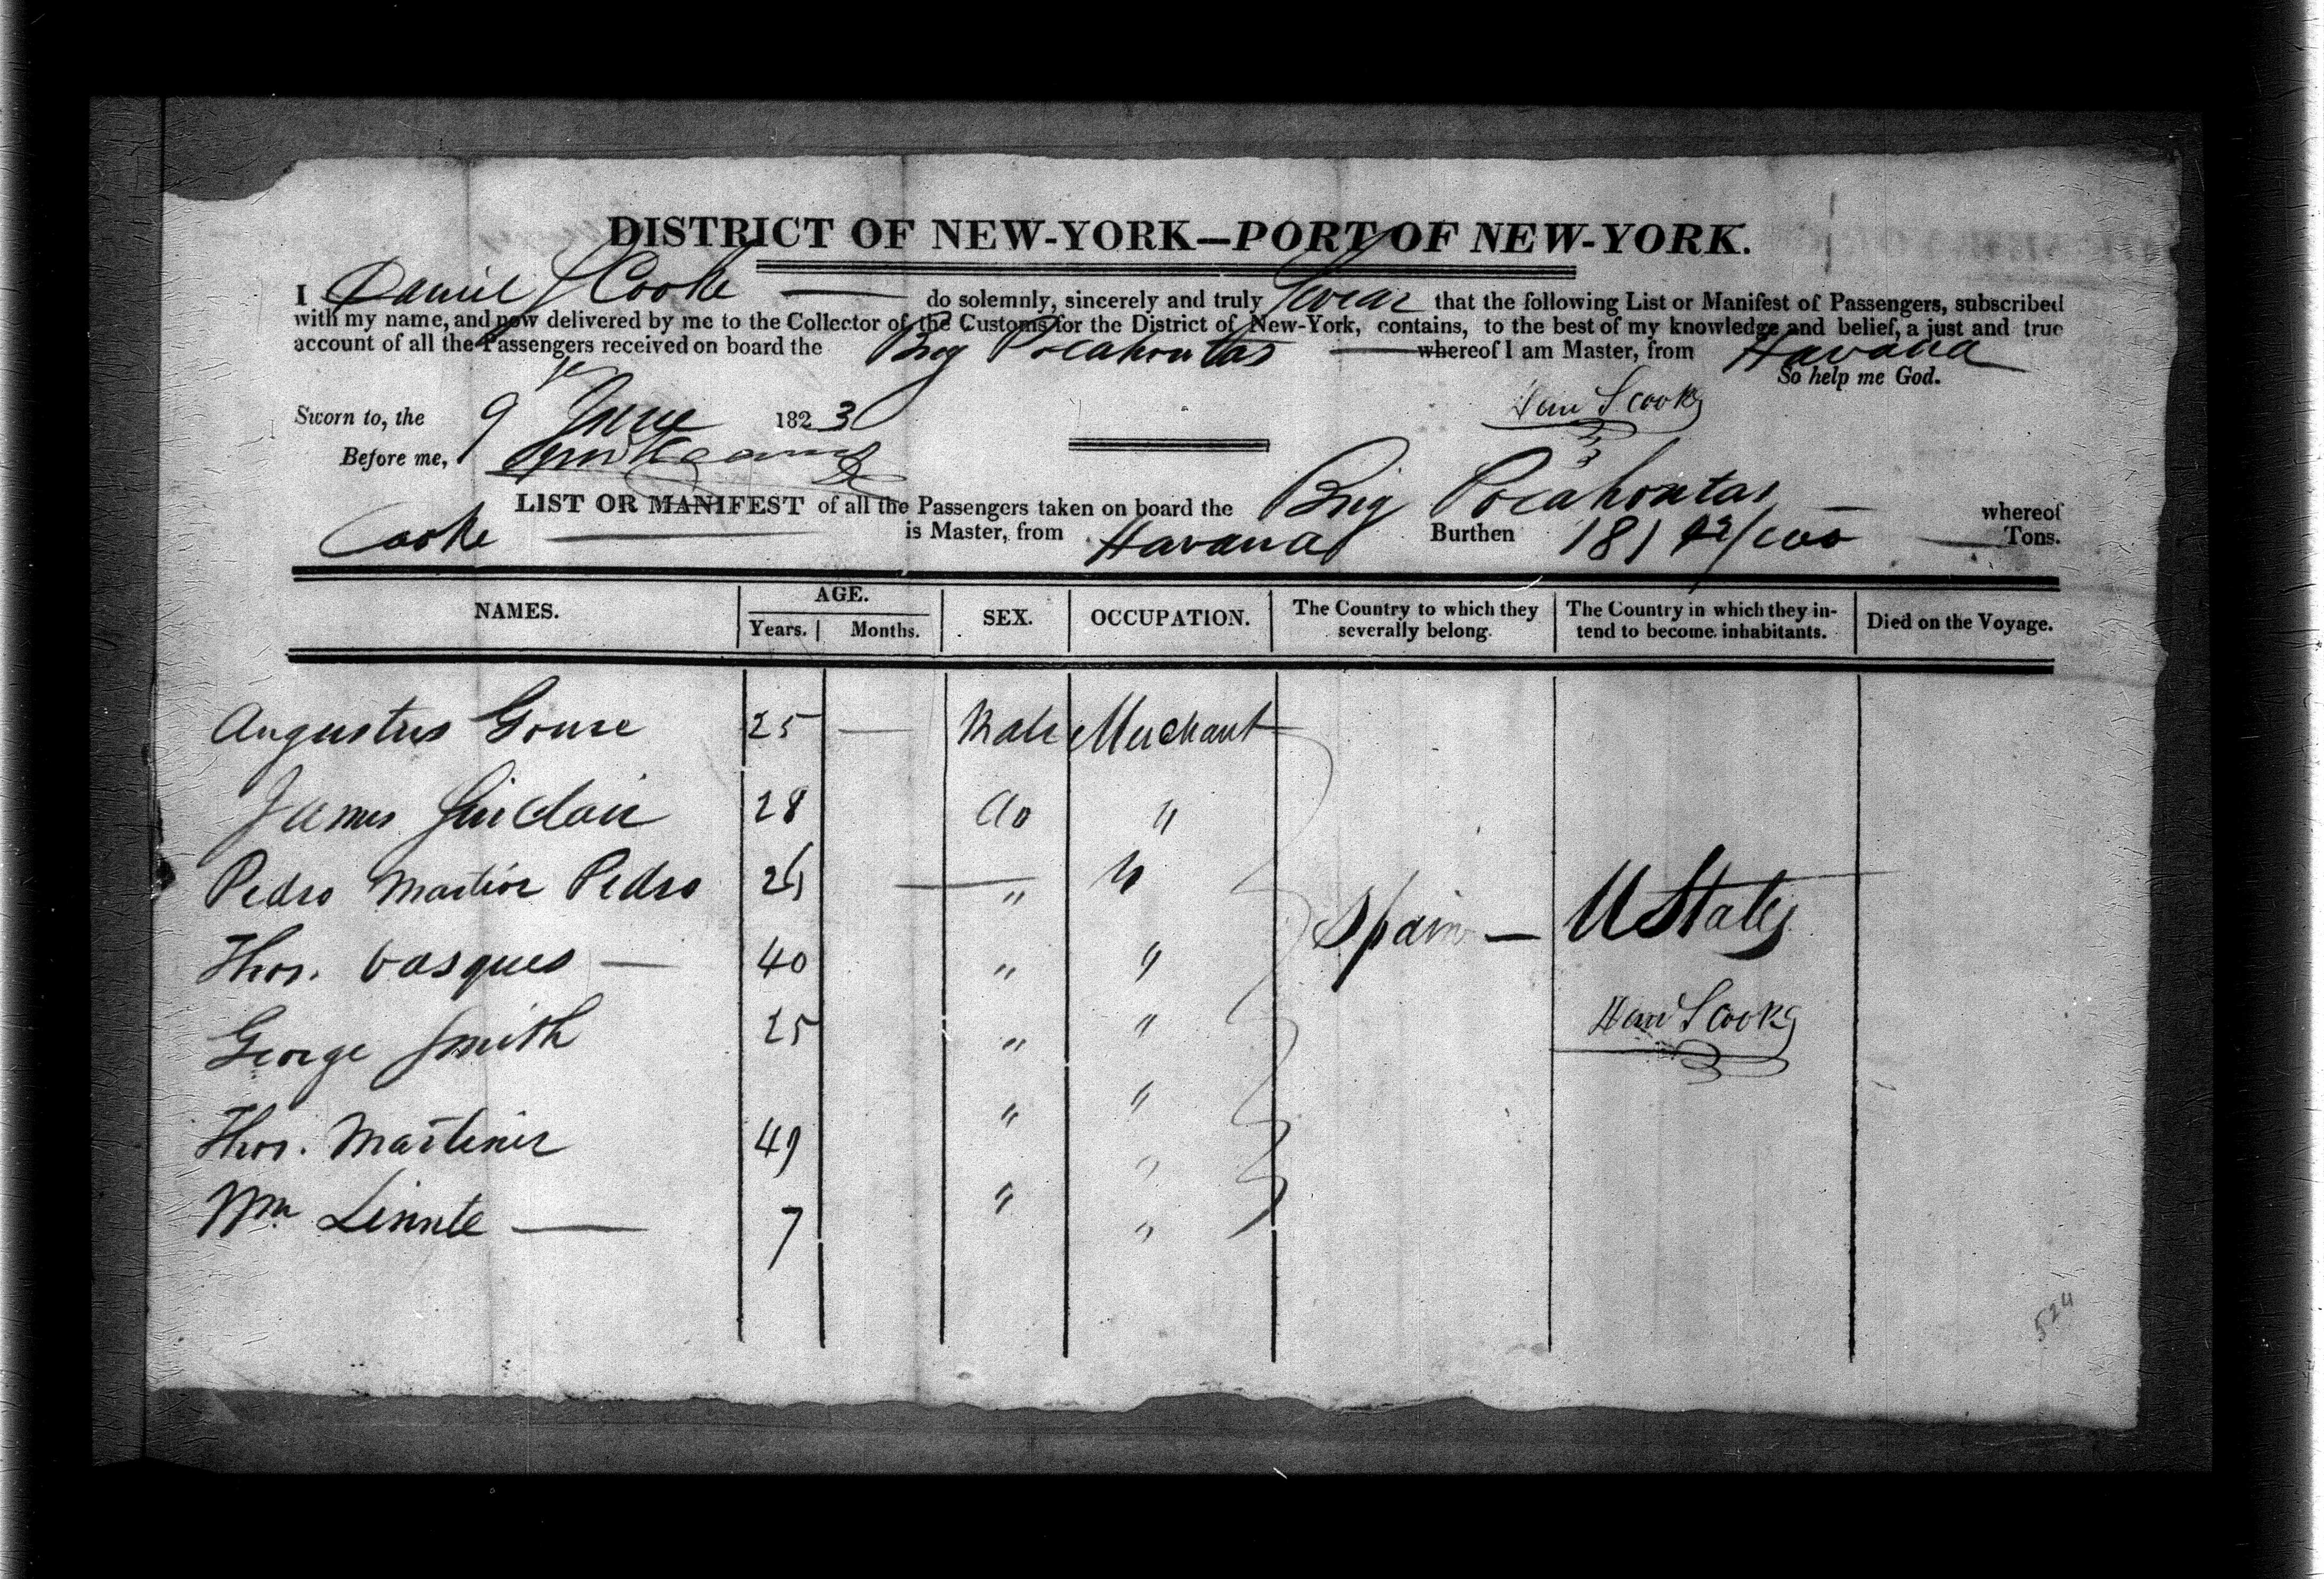 DISTRICT OF NEW-YORK—PORT OF NEW-YORK.
I Daniel S Cooke do solemnly, sincerely and truly Swear that the following List or Manifest of Passengers, subscribed
with my name, and now delivered by me to the Collector of the Customs for the District of New-York, contains, to the best of my knowledge and belief, a just and true
account of all the Passengers received on board the Brig Pocahontas whereof I am Master, from Havana
So help me God.
Sworn to, the 9 June 1823
Dan S Cooke
Before me,
LIST OR MANIFEST of all the Passengers taken on board the Brig Pocahontas whereof
Cooke is Master, from Havana Burthen 181 42/100 Tons.
NAMES. AGE. Years. Months. SEX. OCCUPATION. The Country to which they severally belong. The Country in which they intend to become inhabitants. Died on the Voyage.
Augustus 25 — Male Merchant
James Sinclair 28 do "
Pedro Pedro " "
Thos. Vasques — 40 " "
Spain — U States
George Smith 25 " "
Dan S Cooke
Thos. Martinez 49 " "
Wm Linnte — 7 " "
524